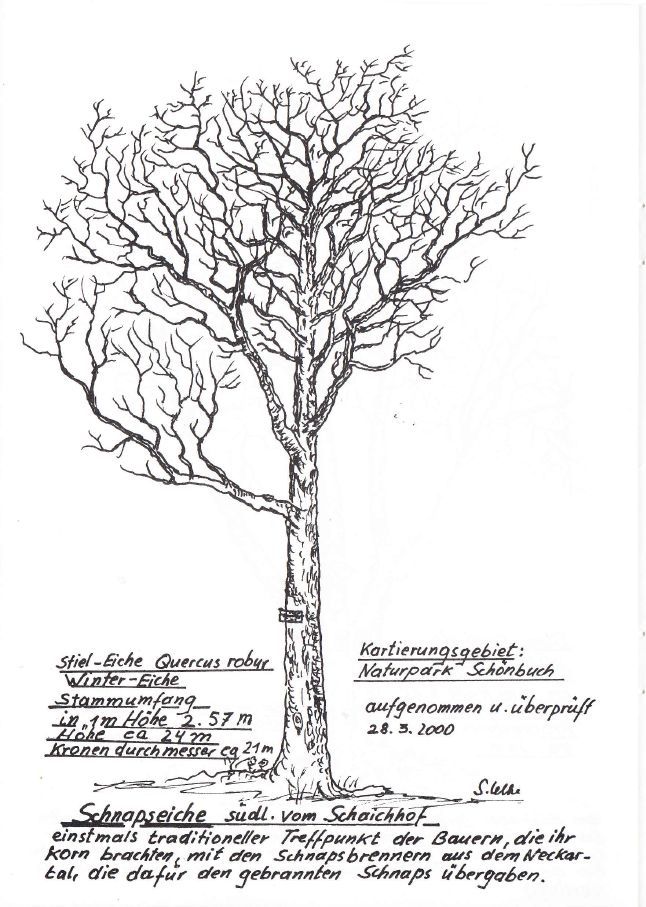 Stiel-Eiche Quercus robur
Winter-Eiche
Stammumfang
in 1m Höhe 2.57 m
Höhe ca 24 m
Kronendurchmesser ca 21 m
Kartierungsgebiet:
Naturpark Schönbuch
aufgenommen u. überprüft
28.3.2000
Schnapseiche südl. vom Schaichhof
einstmals traditioneller Treffpunkt der Bauern, die ihr
Korn brachten, mit den Schnapsbrennern aus dem Neckar-
tal, die dafür den gebrannten Schnaps übergaben.